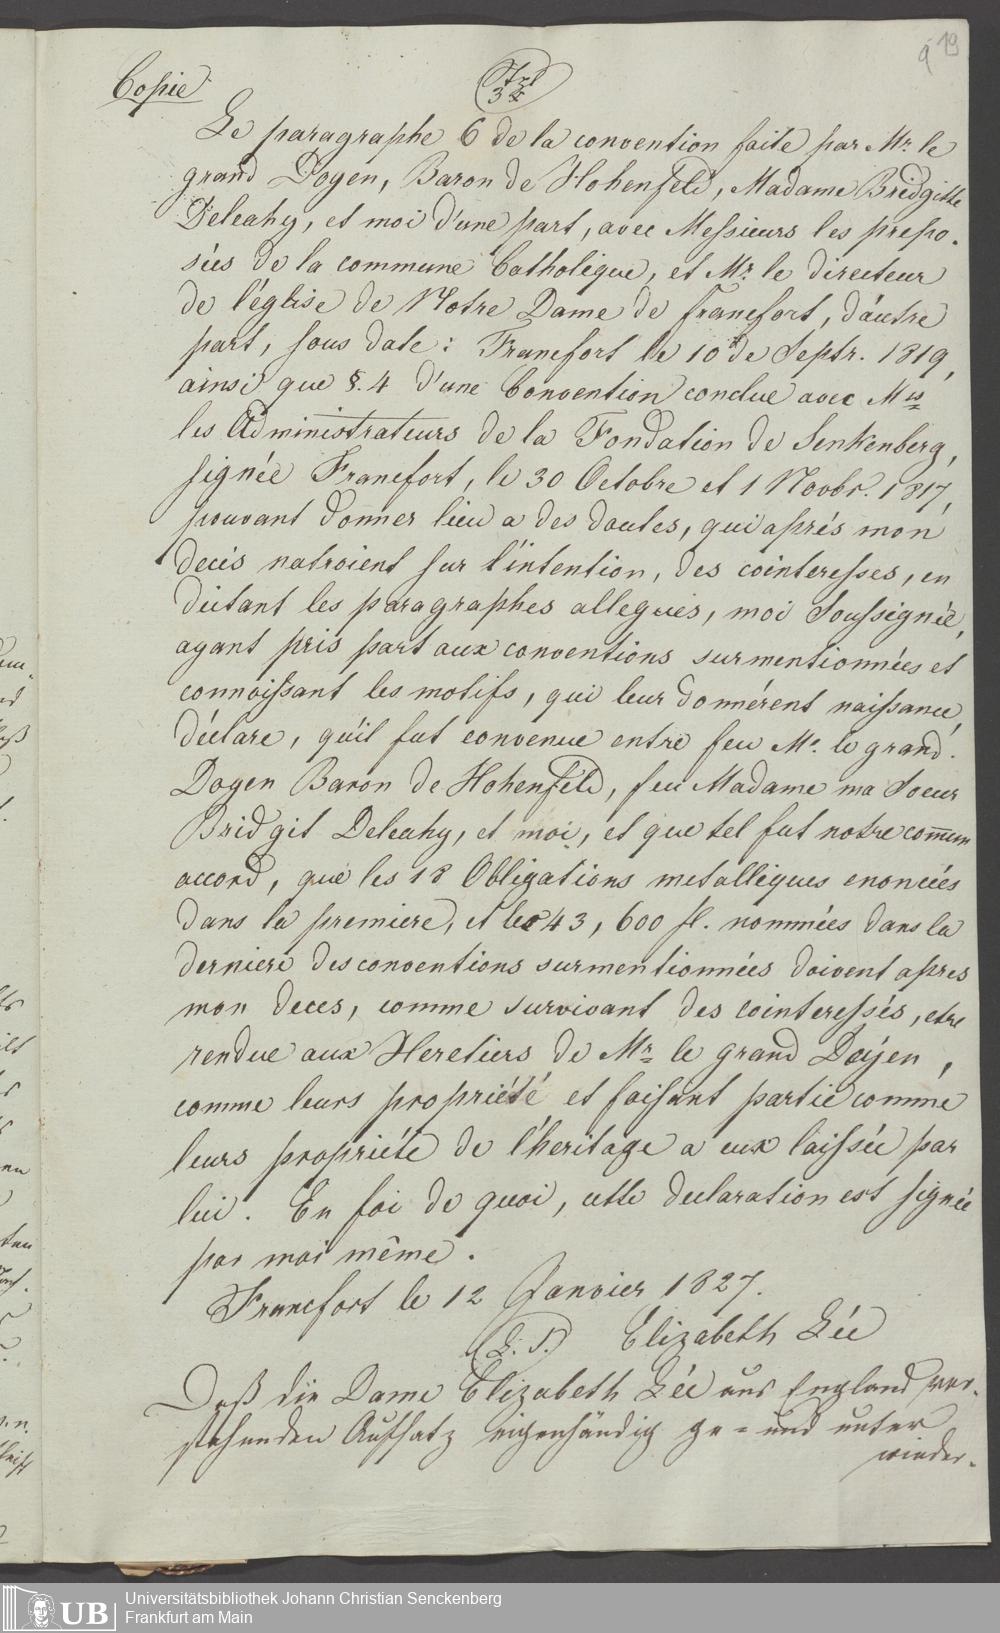 9 19
Copie
Le paragraphe 6 de la convention faite par Mr. le
grand Doyen, Baron de Hohenfeld, Madame Bridgitte
Deleahy, et moi d'une part, avec Messieurs les prepo-
sées de la commune Catholique, et Mr. le directeur
de l'église de Notre Dame de francfort, d'áutre
part, sous date: Francfort le 10 de Septr. 1819,
ainsi que §. 4 d'une Convention conclue avec Mrs
les Administrateurs de la Fondation de Senkenberg,
signée Francfort, le 30 Octobre et 1 Novbr. 1817,
pouvant donner lieu a des doutes, qui aprés mon
decés natroient sur l'intention, des cointeresses, en
dictant les paragraphes allegués, moi Soussignée,
ayant pris part aux conventions surmentionnées et
connoissant les motifs, qui leur donnérent naissance,
déclare, qu'il fut convenue entre feu Mr. le grand.
Doyen Baron de Hohenfeld, feu Madame ma Soeur
Bridgit Deleahy, et moi, et que tel fut notre commun
accord, que les 18 Obligations metalliques enoncées
dans la premiere, et les 43,600 fl. nommées dans la
derniere des conventions surmentionnées doivent apres
mon deces, comme survivant des cointeressés, etre
rendue aux Heretiers de Mr. le grand Doyen,
comme leurs propriété et faisant partie comme
leurs propriéte de l'heritage a eux laissée par
lui. En foi de quoi, cette declaration est signée
par moi même.
Francfort le 12 Janvier 1827.
(L. S.) Élizabeth Lée
Daß die Dame Elizabeth Lée aus England vor-
stehenden Aufsatz eigenhändig ge- und unter
wieder-
Universitätsbibliothek Johann Christian Senckenberg
Frankfurt am Main
UB